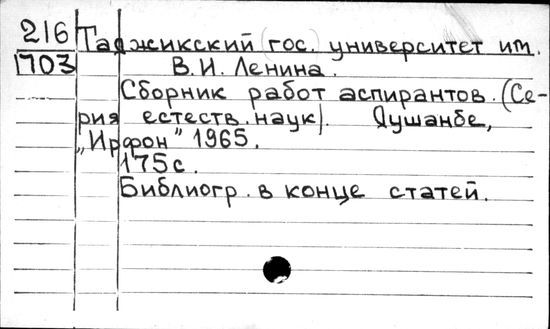 216
1703
Таджикский (гос.) университет им.
В.И. Ленина.
Сборник работ аспирантов. (Се-
рия естеств. наук). Душанбе,
„Ирфон" 1965.
175с.
Библиогр. в конце статей.